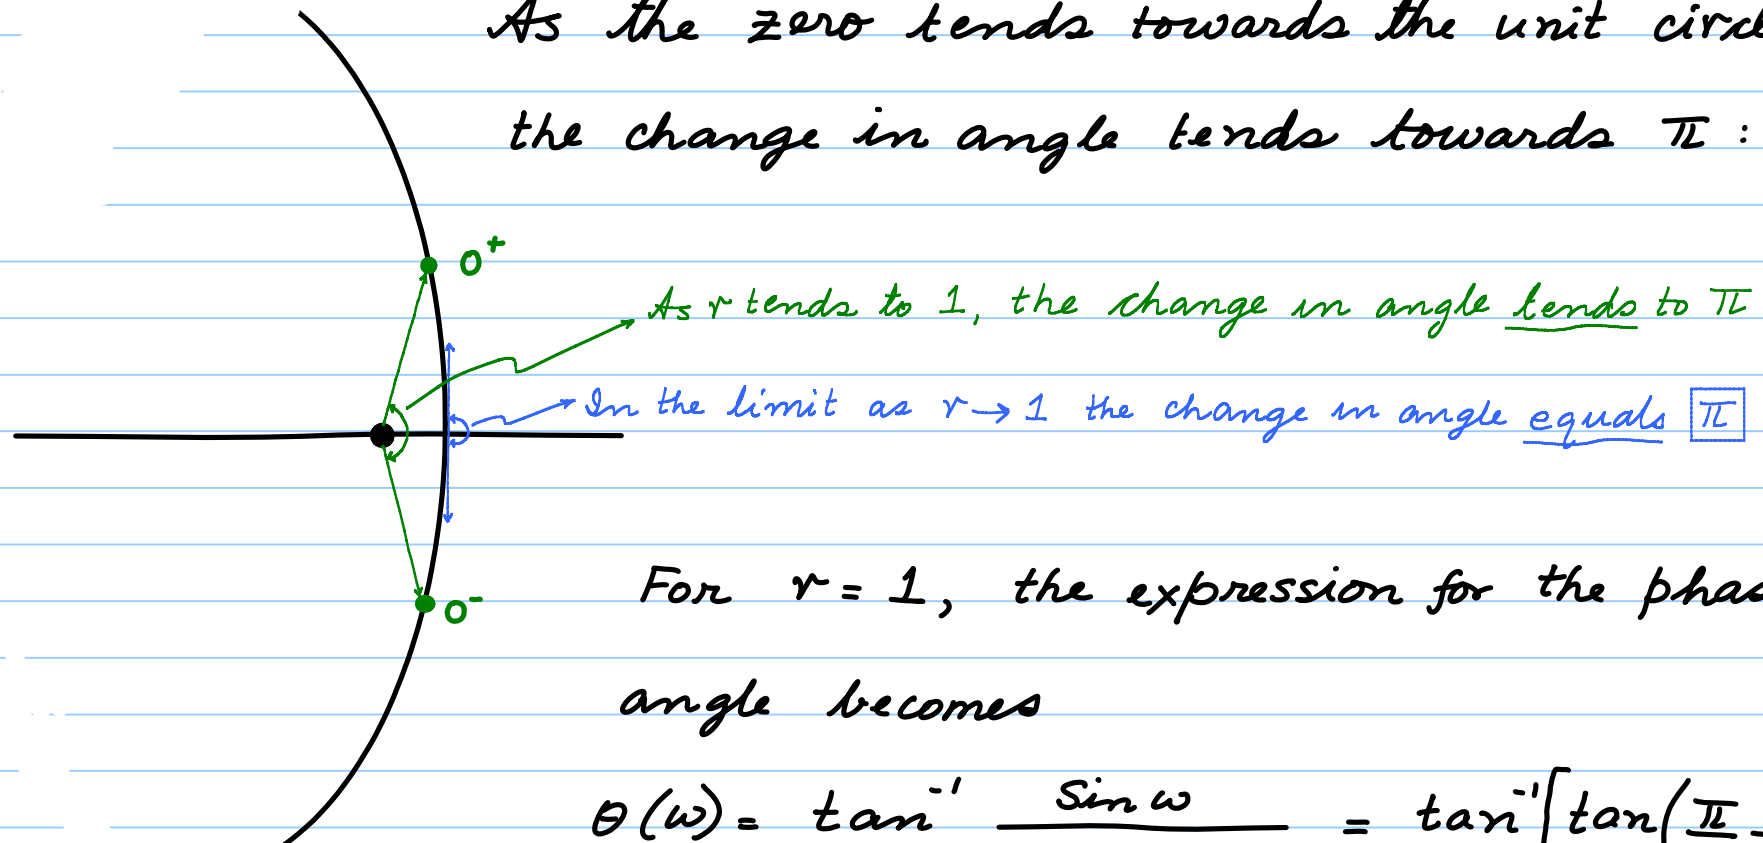 As the zero tends towards the unit
the change in angle tends towards π :
0⁺
As r tends to 1, the change in angle tends to π
In the limit as r → 1 the change in angle equals π
For r = 1, the expression for the
0⁻
angle becomes
θ(ω) = tan⁻¹ sin ω = tan⁻¹[tan(π